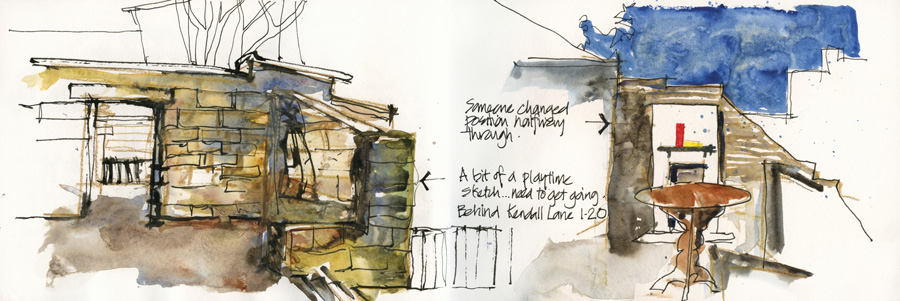 Someone changed
position halfway
through.
A bit of a playtime
sketch...need to get going.
Behind Kendall Lane 1.20